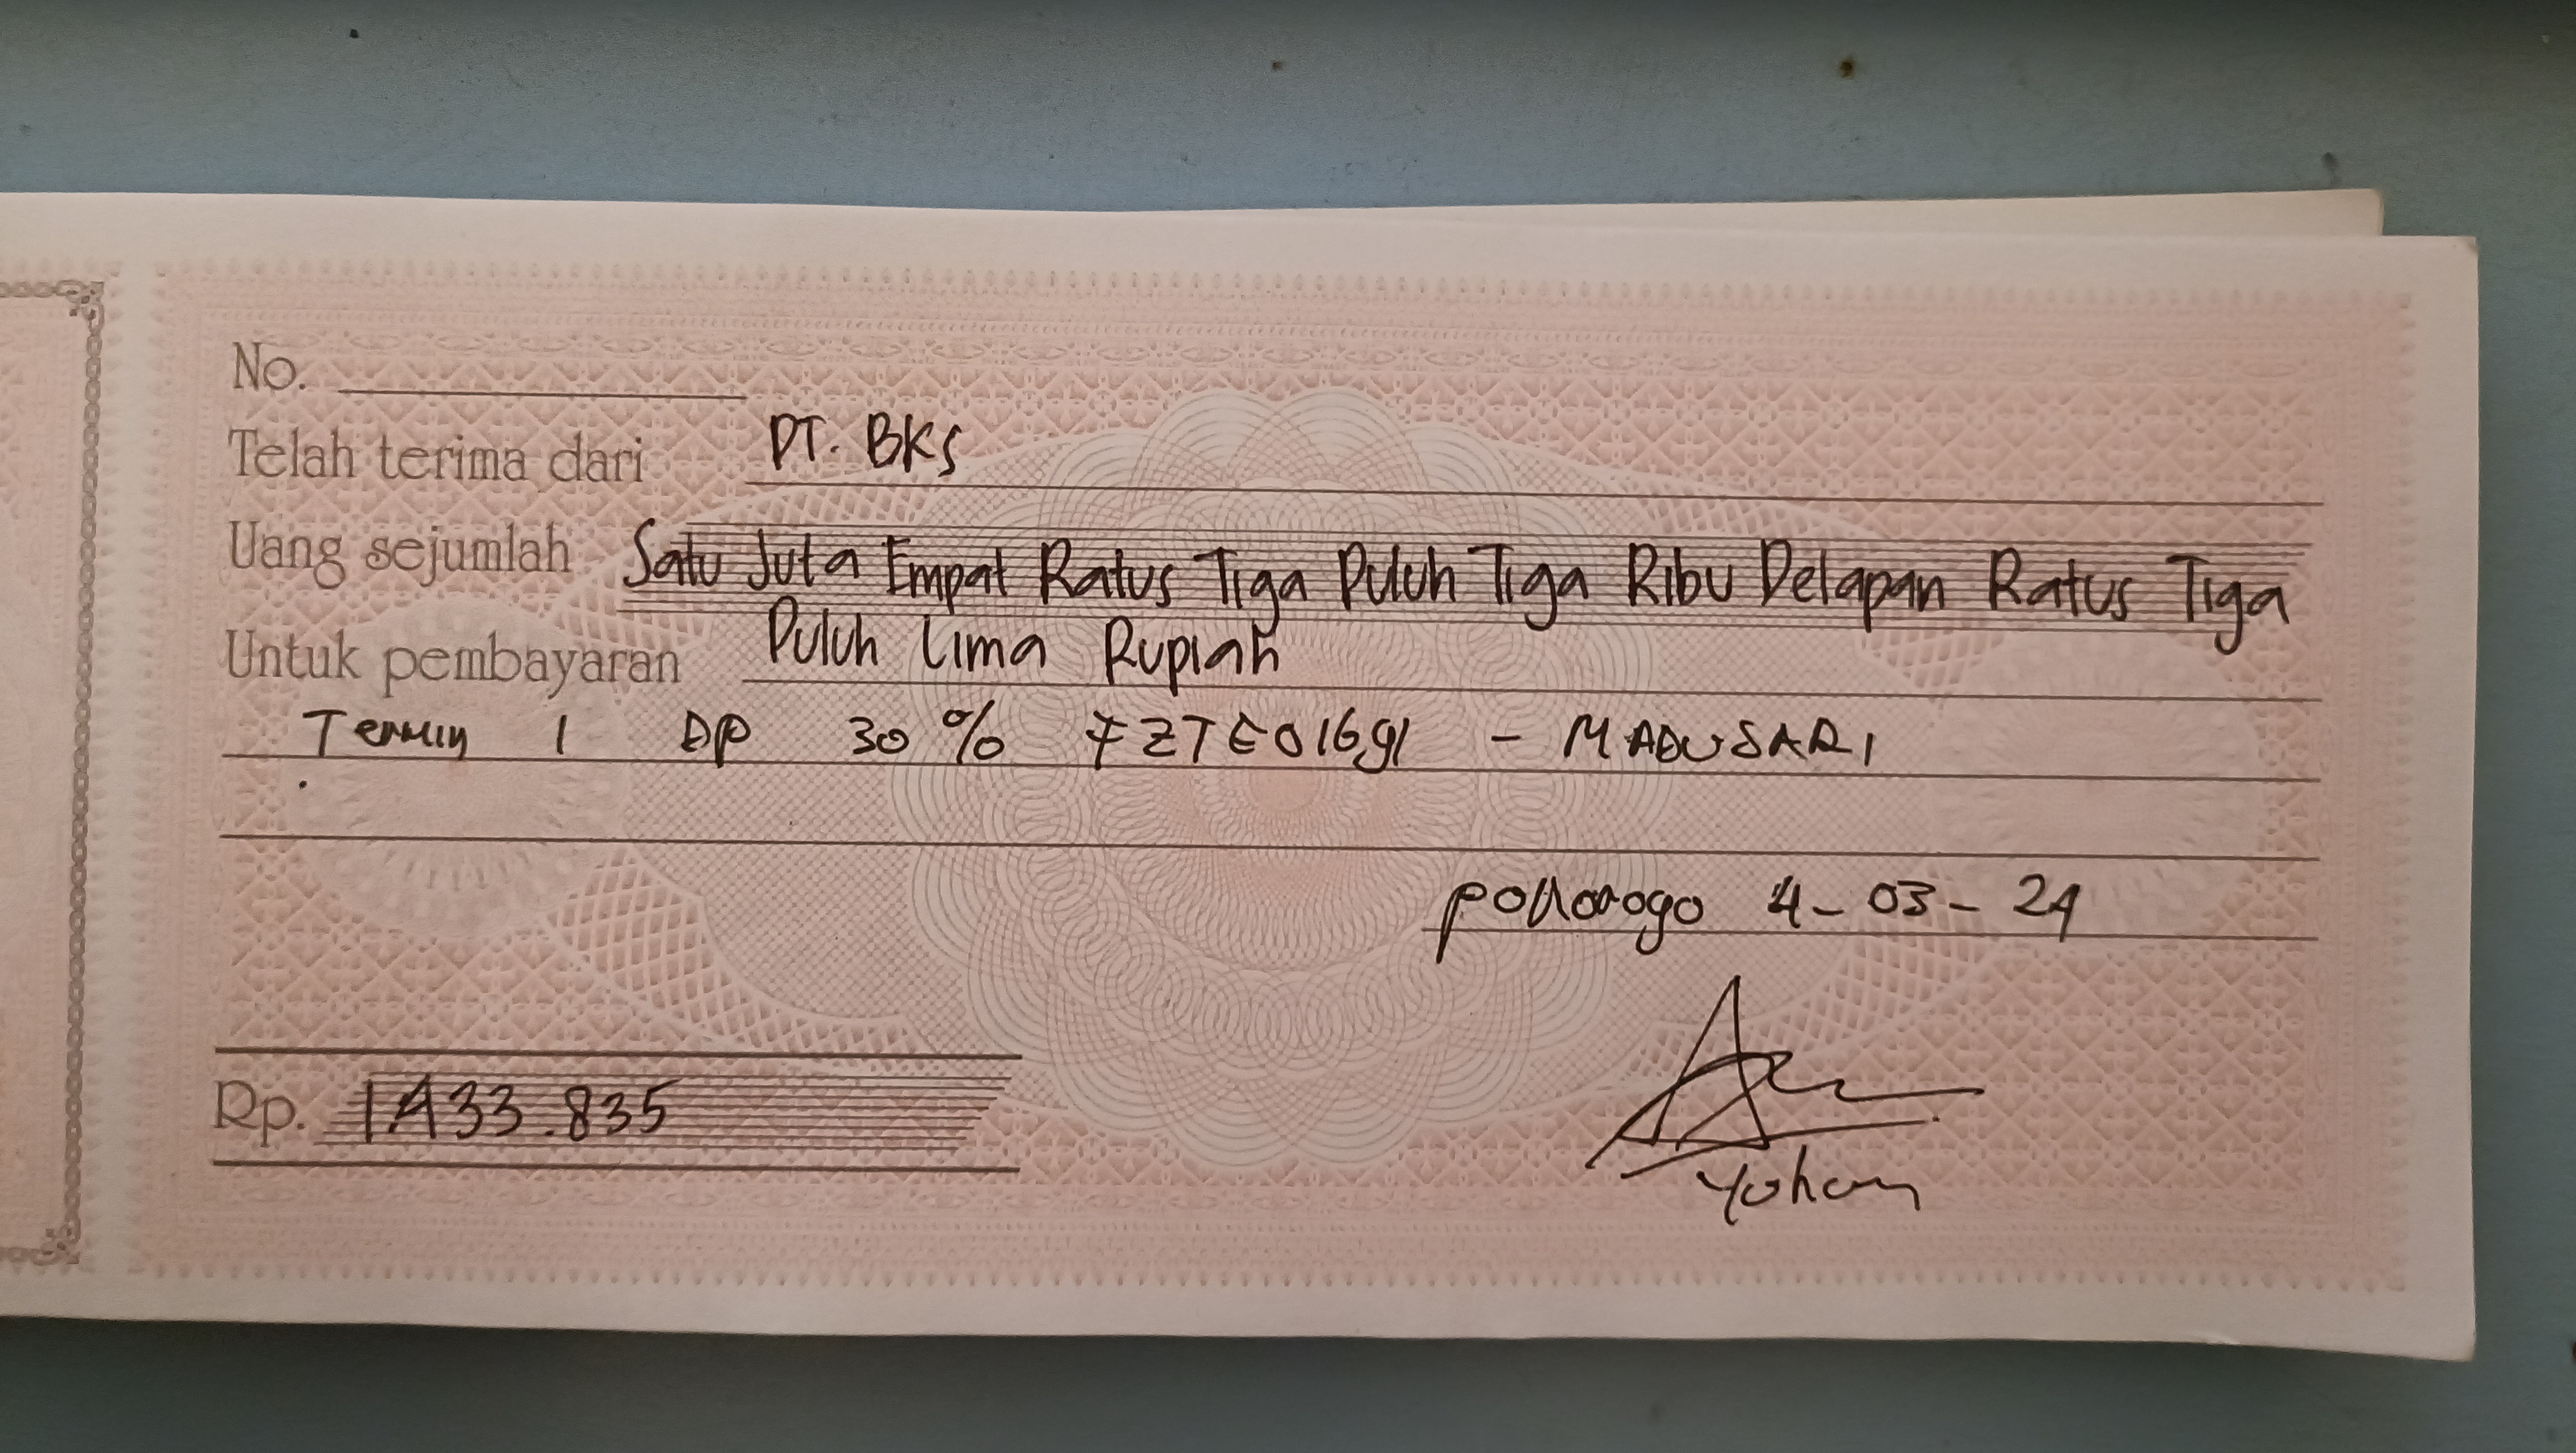 No.
Telah terima dari PT. BKS
Uang sejumlah Satu Juta Empat Ratus Tiga Puluh Tiga Ribu Delapan Ratus Tiga
Untuk pembayaran Puluh Lima Rupiah
Termin 1 DP 30 % FZTE01691 - MADUSARI
ponorogo 4-03-24
Rp. 1433.835
Yohan